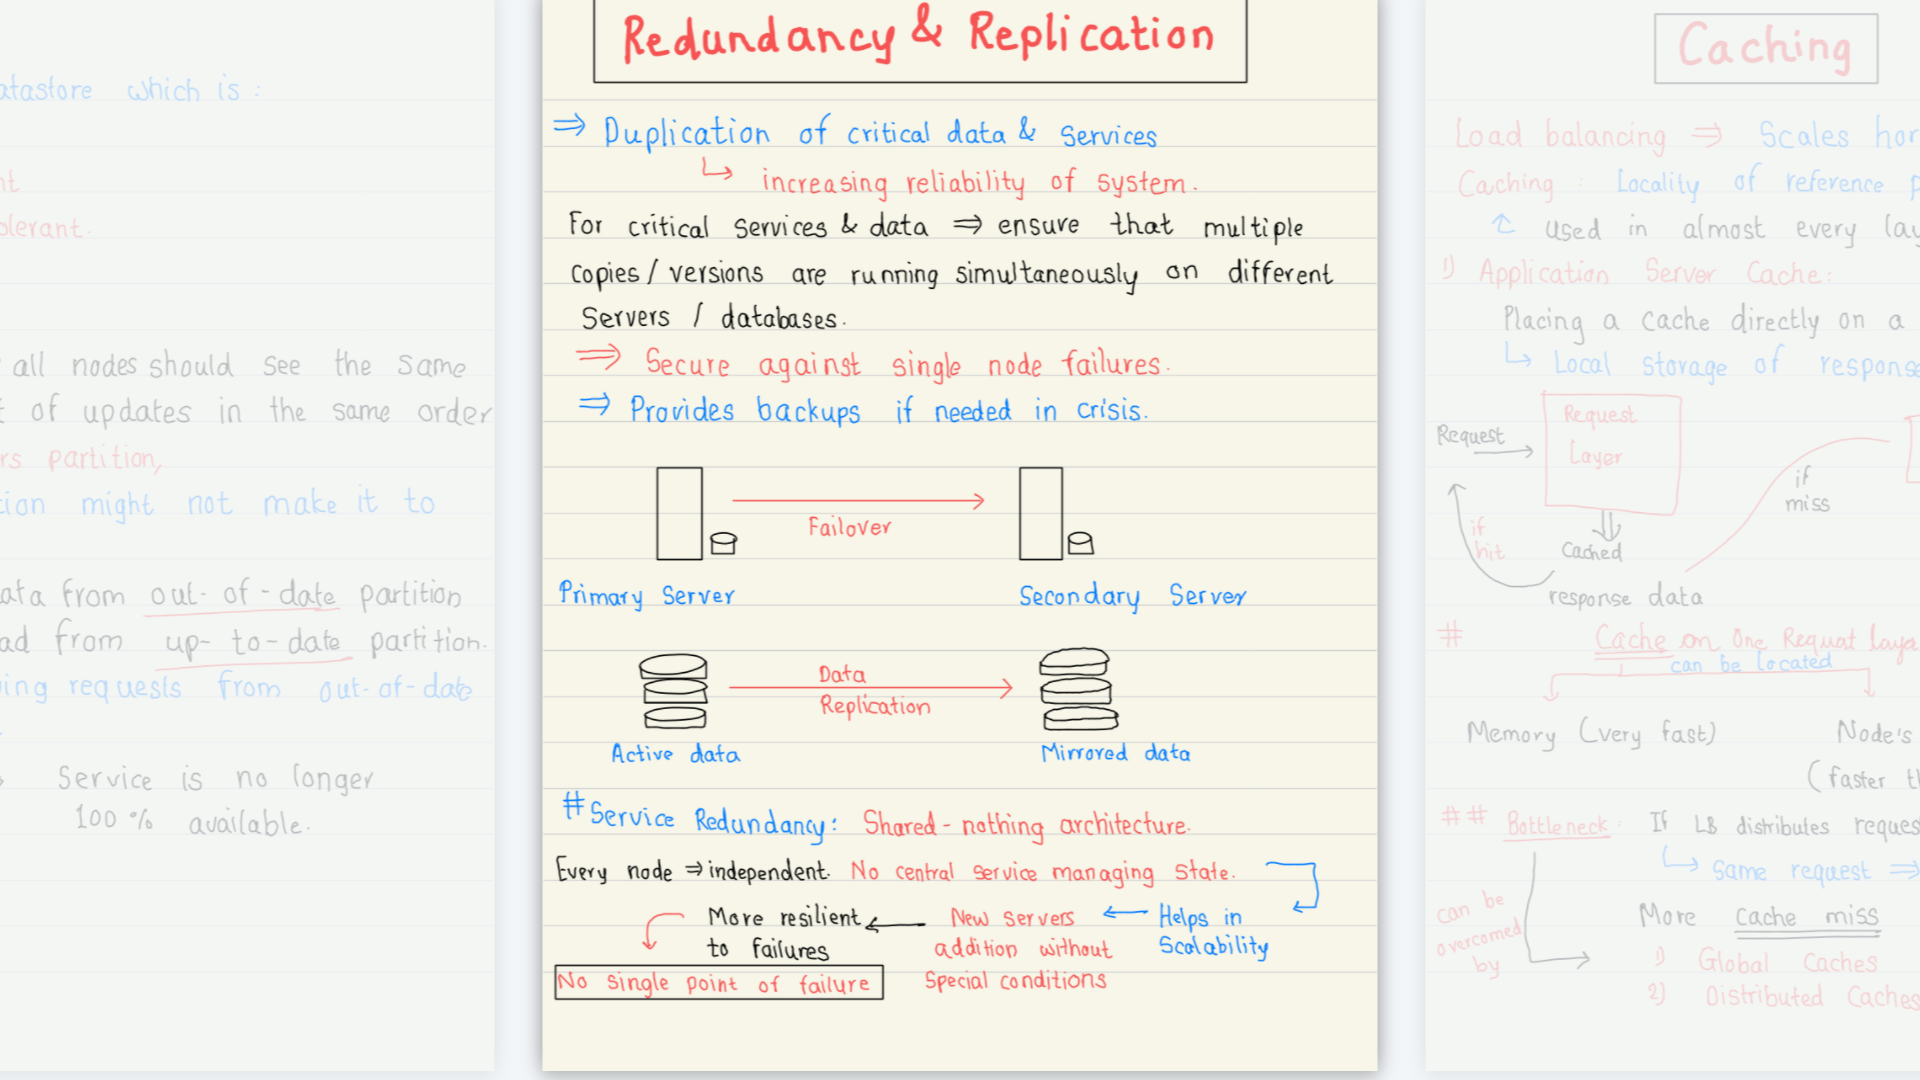 atastore which is :
nt
olerant.
all nodes should see the same
t of updates in the same order
rs partition,
tion might not make it to
ata from out-of-date partition
ad from up-to-date partition.
ing requests from out-of-date
Service is no longer
100 % available.
Redundancy & Replication
⇒ Duplication of critical data & services
↳ increasing reliability of system.
For critical services & data ⇒ ensure that multiple
copies / versions are running simultaneously on different
Servers / databases.
⇒ Secure against single node failures.
⇒ Provides backups if needed in crisis.
Failover
Primary Server Secondary Server
Data
Replication
Active data Mirrored data
# Service Redundancy: Shared-nothing architecture.
Every node ⇒ independent. No central service managing state.
More resilient ← New servers ← Helps in
to failures addition without Scalability
No single point of failure Special conditions
Caching
Load balancing ⇒ Scales hor
Caching : Locality of reference p
used in almost every lay
1) Application Server Cache:
Placing a cache directly on a
↳ Local storage of response
Request
Request
Layer
if
miss
if
hit
Cached
response data
# Cache on One Request laye
can be located
Memory (very fast) Node's
(faster th
## Bottleneck: If LB distributes request
↳ Same request ⇒
can be
overcomed
by
More cache miss
1) Global Caches
2) Distributed Caches